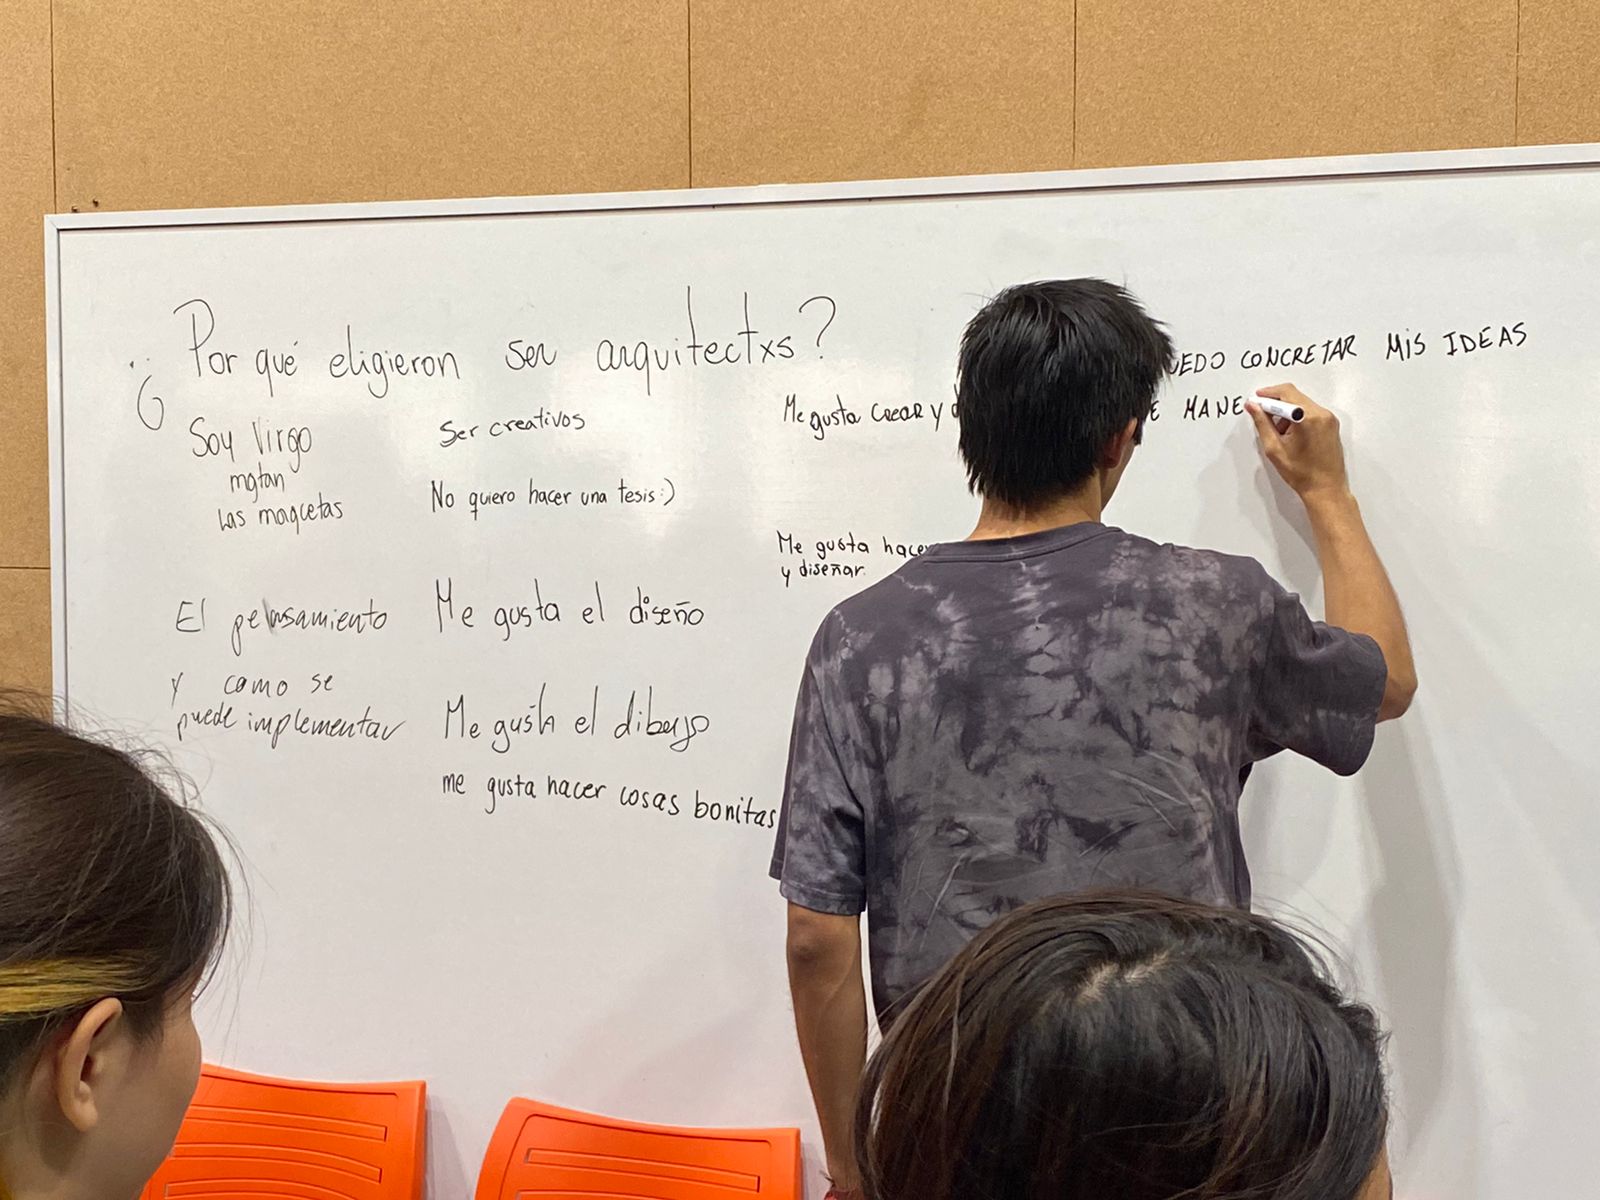 ¿Por qué eligieron ser arquitectxs?
Soy Virgo
matan
las maquetas
El pensamiento
y como se
puede implementar
Ser creativos
No quiero hacer una tesis :)
Me gusta el diseño
Me gusta el dibujo
me gusta hacer cosas bonitas
Me gusta crear y
Me gusta hacer
y diseñar.
CONCRETAR MIS IDEAS